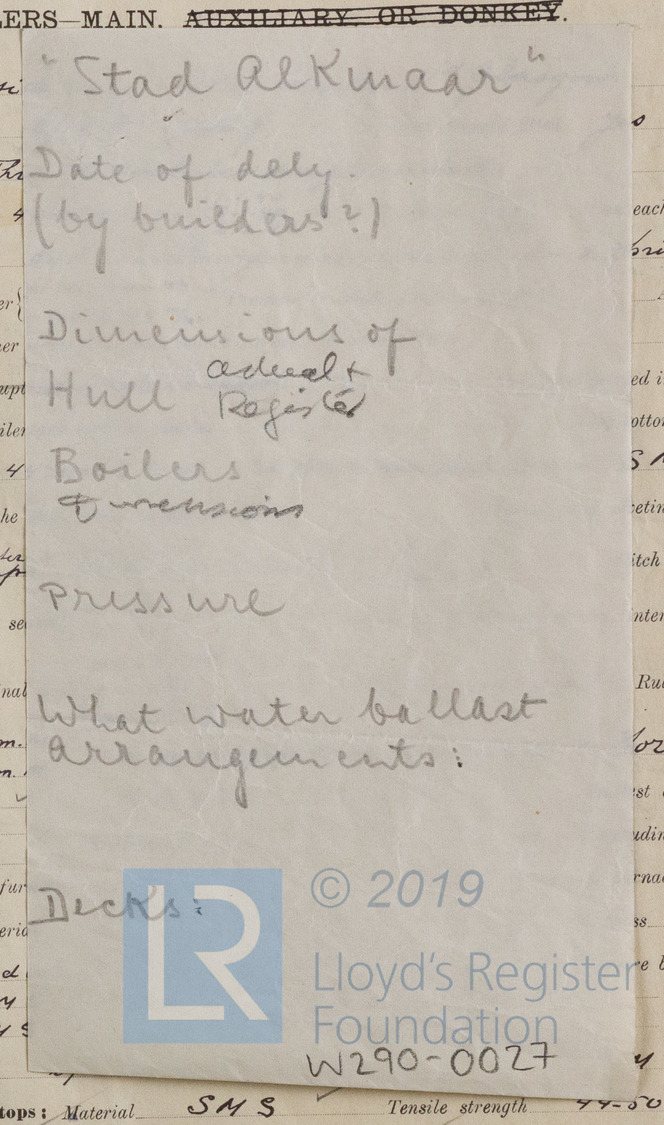 LERS—MAIN. AUXILIARY OR DONKEY.
"Stad Alkmaar"
Date of dely.
(by builders?)
Dimensions of
Hull actual + Register
Boilers
Dimensions
Pressure
What water ballast
arrangements:
Decks:
LR
© 2019
Lloyd's Register
Foundation
W290-0027
tops: Material SMS Tensile strength 44-50